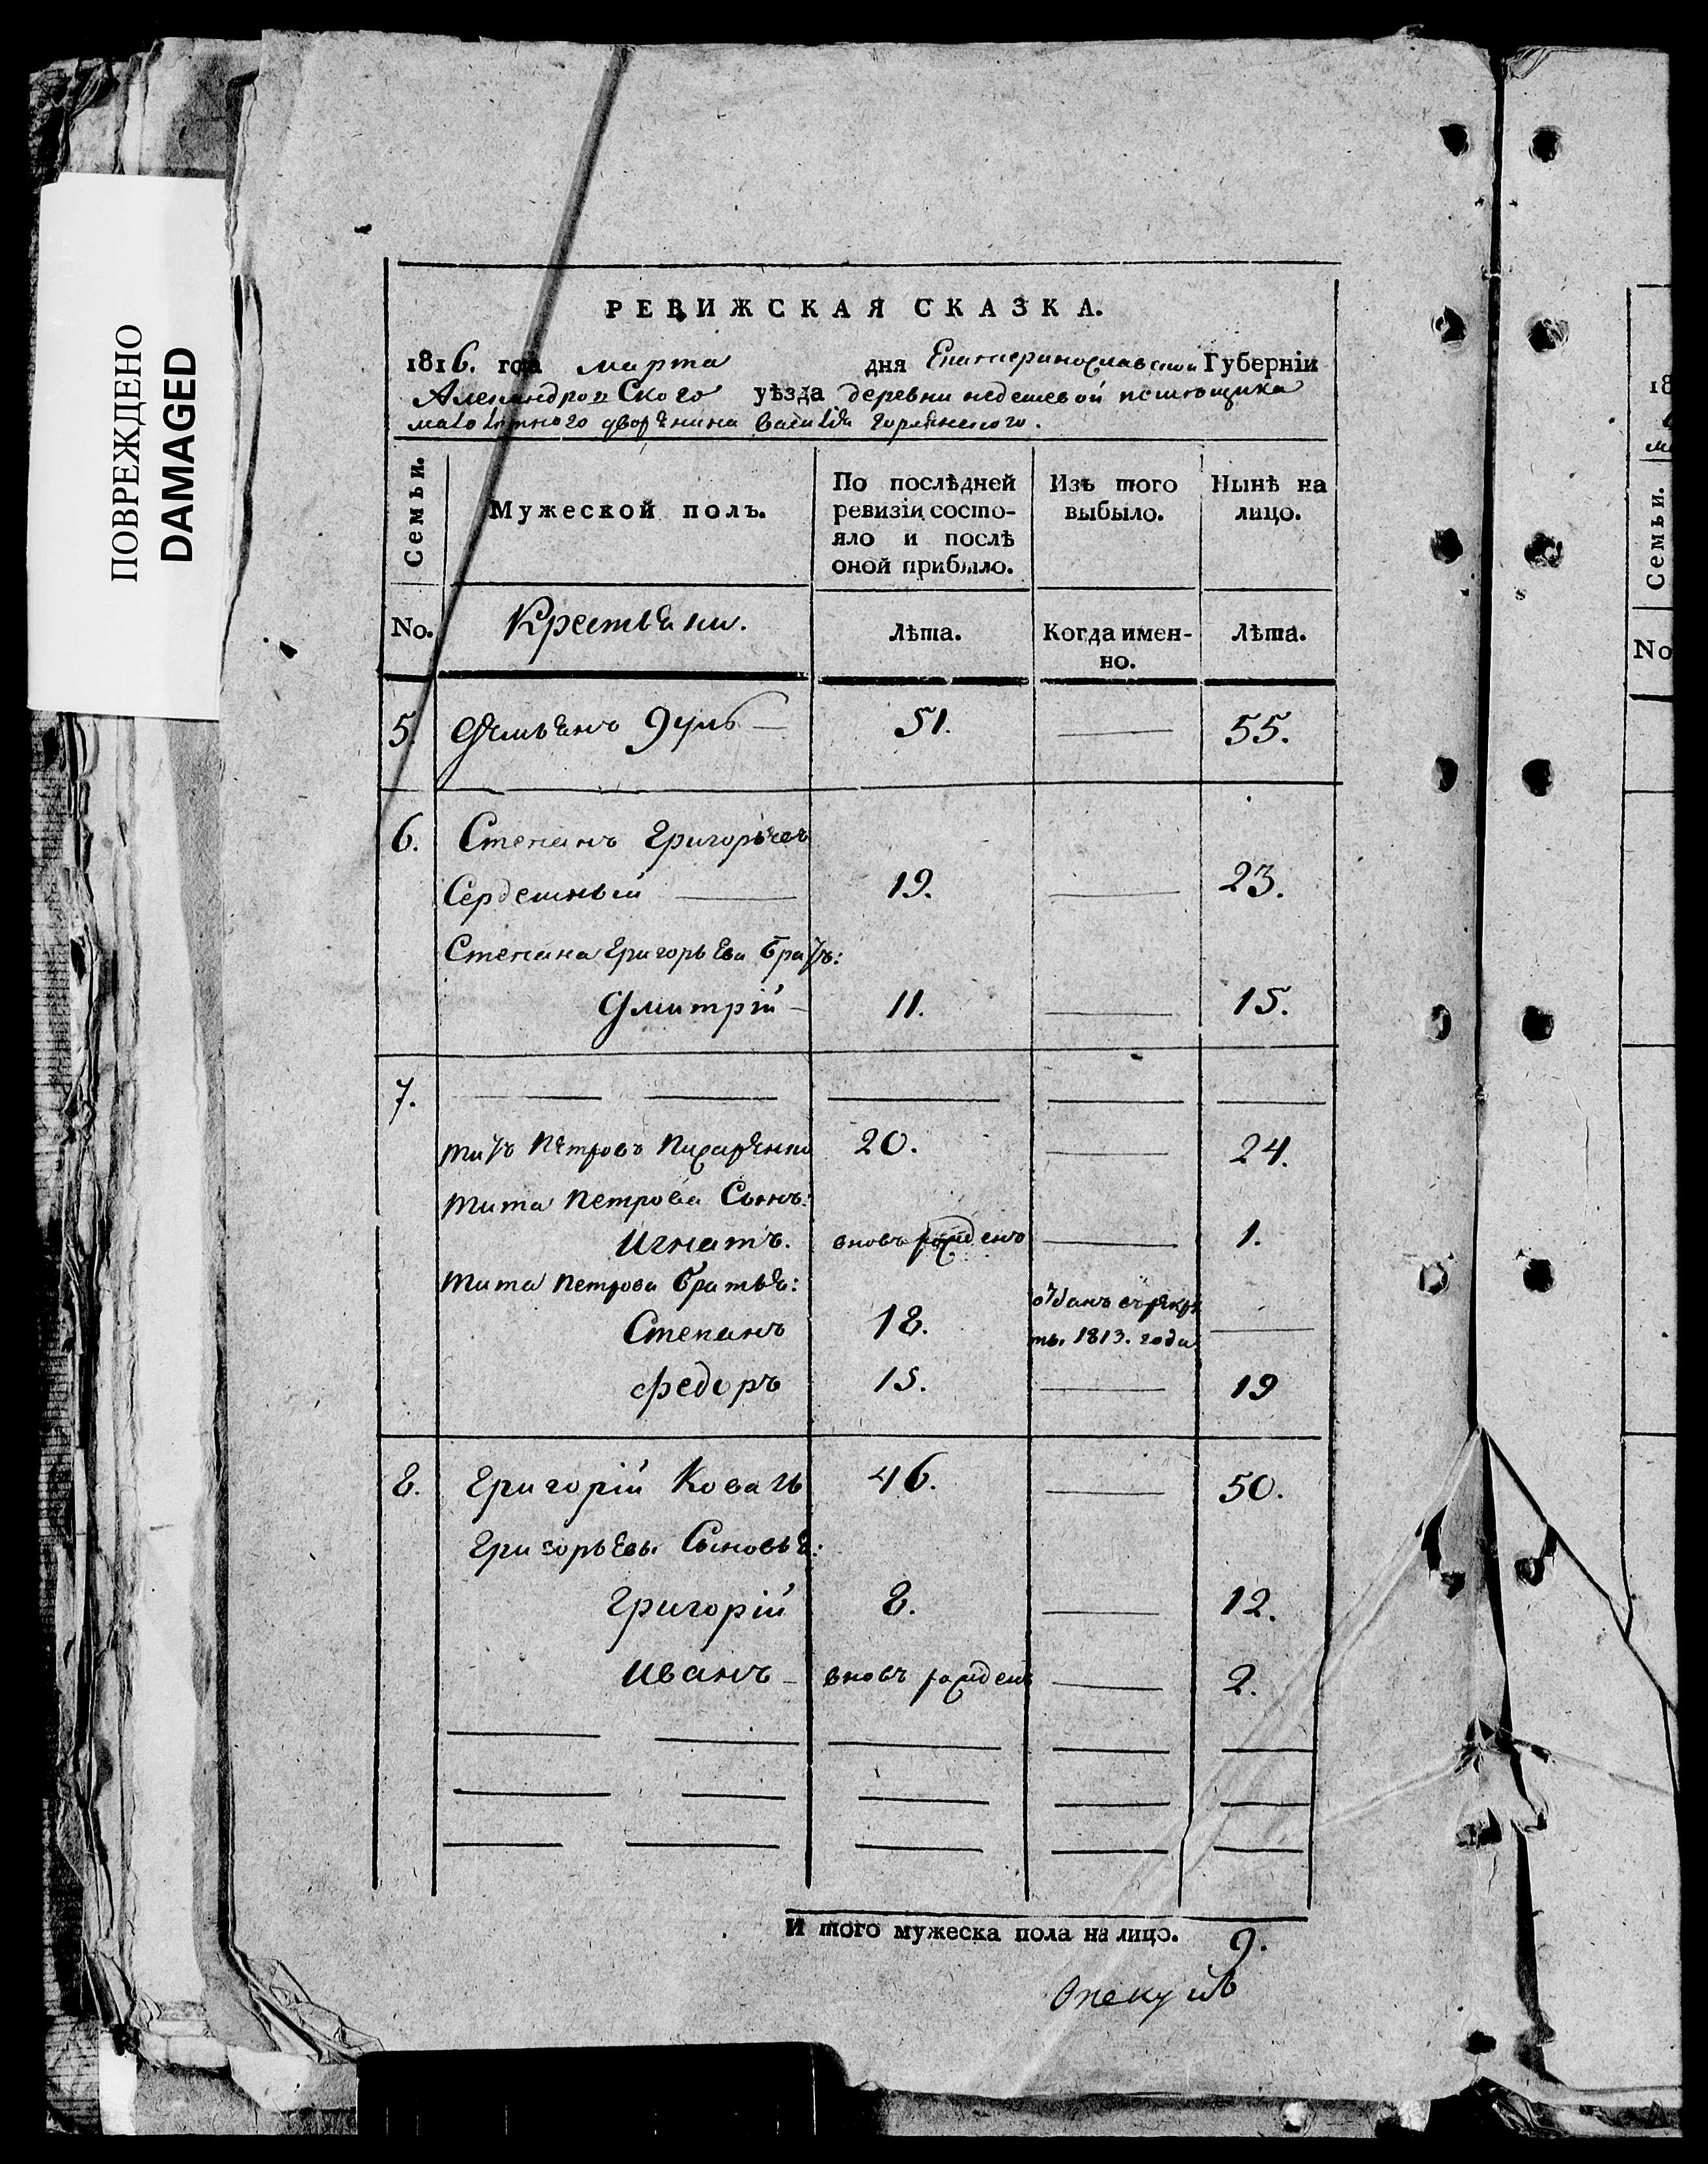 ПОВРЕЖДЕНО
DAMAGED
РЕВИЖСКАЯ СКАЗКА.
1816. года марта дня Екатеринославской Губерніи
Александровского уѣзда деревни недешевой помѣщика
малолѣтного дворянина василія горлинского.
Семьи.
Мужеской полъ.
По послѣдней ревизіи состо-
яло и послѣ
оной прибыло.
Изъ того
выбыло.
Нынѣ на
лицо.
No. Крестьяни. Лѣта. Когда имен-
но. Лѣта.
5. Демьянъ 51. 55.
6. Степанъ Григорьевъ
Сердешный 19. 23.
Степана Григорьева братъ:
Дмитрій 11. 15.
7.
титъ Петровъ 20. 24.
тита Петрова Сынъ:
Игнатъ. вновь рожденъ 1.
тита Петрова братья:
Степанъ 18. отданъ въ рекру
ты. 1813. года
федоръ 15. 19
8. Григорій Коваль 46. 50.
Григорьевы Сыновья:
Григорій 8. 12.
Иванъ вновь рожденъ 2.
И того мужеска пола на лицо. 9.
Опекунъ
18
Семьи.
No